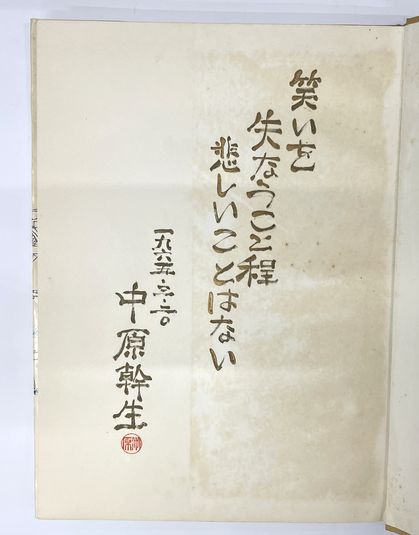 笑いを
失なうこと程
悲しいことはない
一九六五・三・二〇
中原幹生